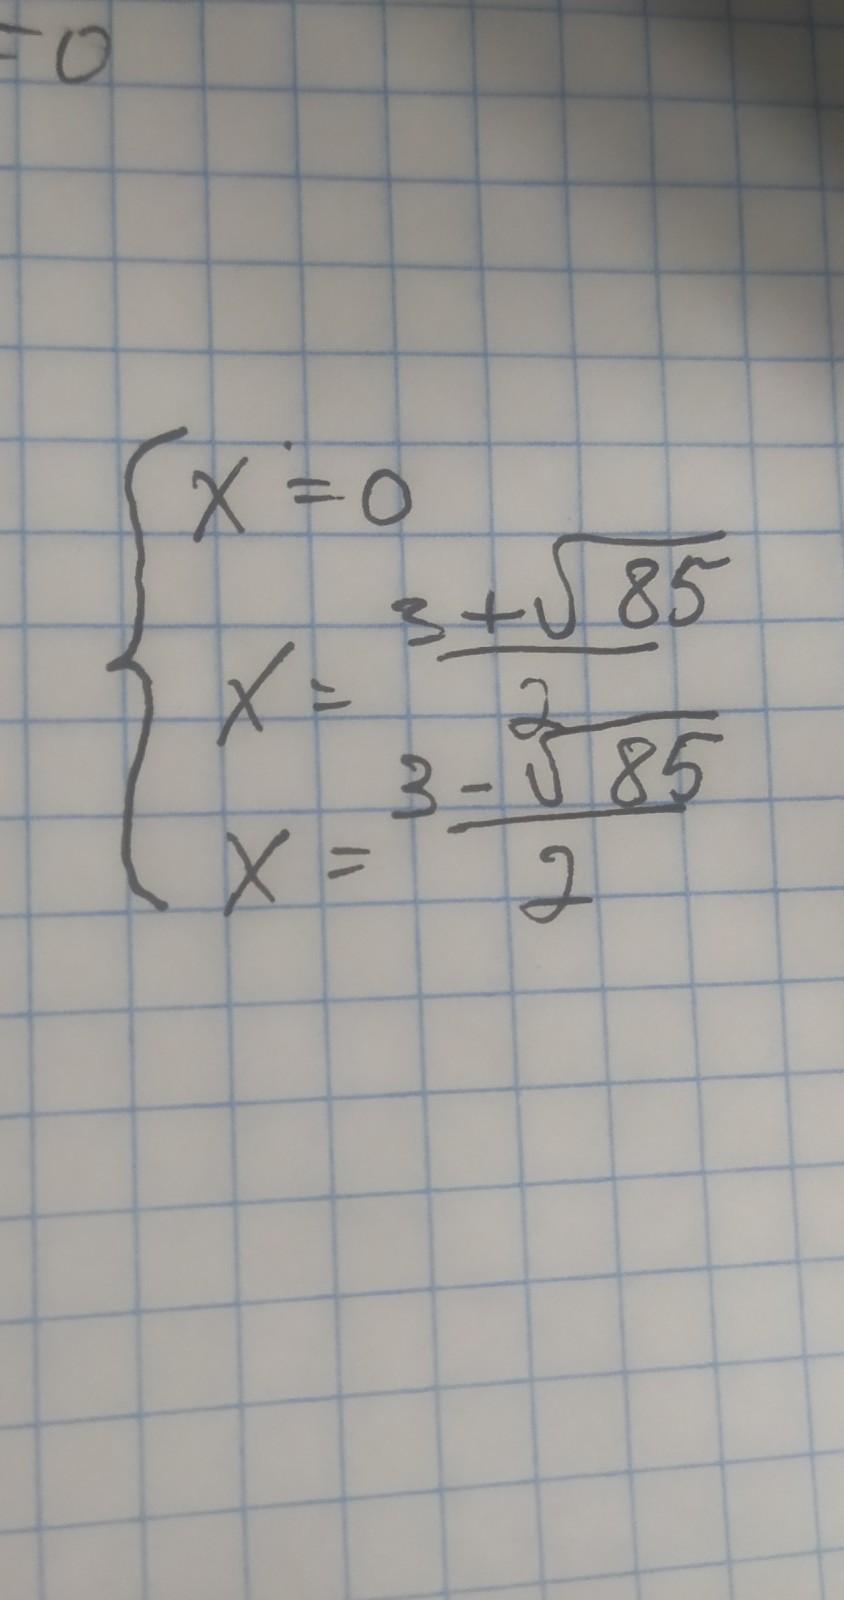 =0
x = 0
x = (3+√85)/2
x = (3-√85)/2